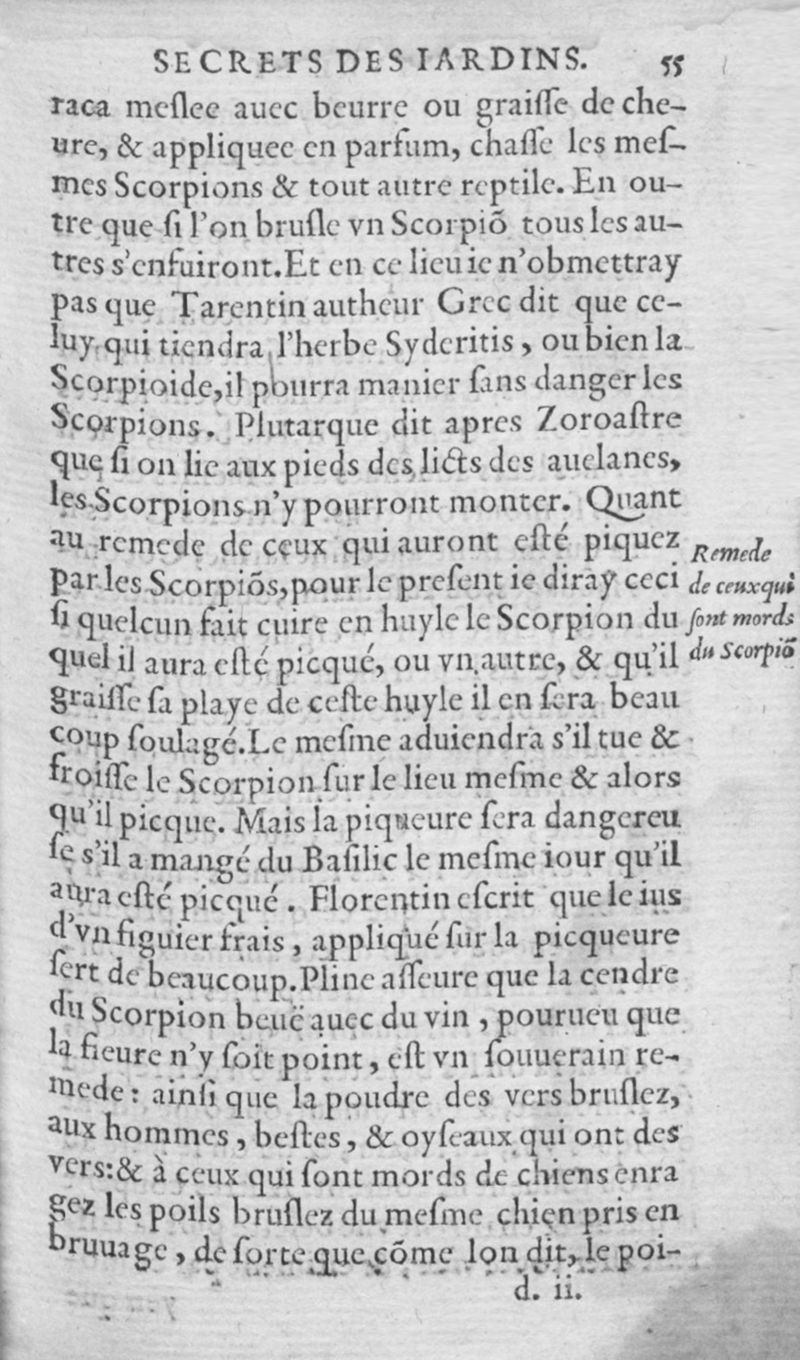 SECRETS DES IARDINS. 55
raca meſlee auec beurre ou graiſſe de che-
ure, & appliquee en parfum, chaſſe les meſ-
mes Scorpions & tout autre reptile. En ou-
tre que ſi l'on bruſle vn Scorpiõ tous les au-
tres s'enfuiront. Et en ce lieu ie n'obmettray
pas que Tarentin autheur Grec dit que ce-
luy qui tiendra l'herbe Syderitis, ou bien la
Scorpioide, il pourra manier ſans danger les
Scorpions. Plutarque dit apres Zoroaſtre
que ſi on lie aux pieds des licts des auelanes,
les Scorpions n'y pourront monter. Quant
au remede de ceux qui auront eſté piquez
par les Scorpiõs, pour le preſent ie diray ceci
ſi quelcun fait cuire en huyle le Scorpion du
quel il aura eſté picqué, ou vn autre, & qu'il
graiſſe ſa playe de ceſte huyle il en ſera beau
coup ſoulagé. Le meſme aduiendra s'il tue &
froiſſe le Scorpion ſur le lieu meſme & alors
qu'il picque. Mais la piqueure ſera dangereu
ſe s'il a mangé du Baſilic le meſme iour qu'il
aura eſté picqué. Florentin eſcrit que le ius
d'vn figuier frais, appliqué ſur la picqueure
ſert de beaucoup. Pline aſſeure que la cendre
du Scorpion beuë auec du vin, pourueu que
la fieure n'y ſoit point, eſt vn ſouuerain re-
mede: ainſi que la poudre des vers bruſlez,
aux hommes, beſtes, & oyſeaux qui ont des
vers: & à ceux qui ſont mords de chiens enra
gez les poils bruſlez du meſme chien pris en
bruuage, de ſorte que cõme lon dit, le poi-
d. ii.
Remede
de ceux qui
ſont mords
du Scorpiõ